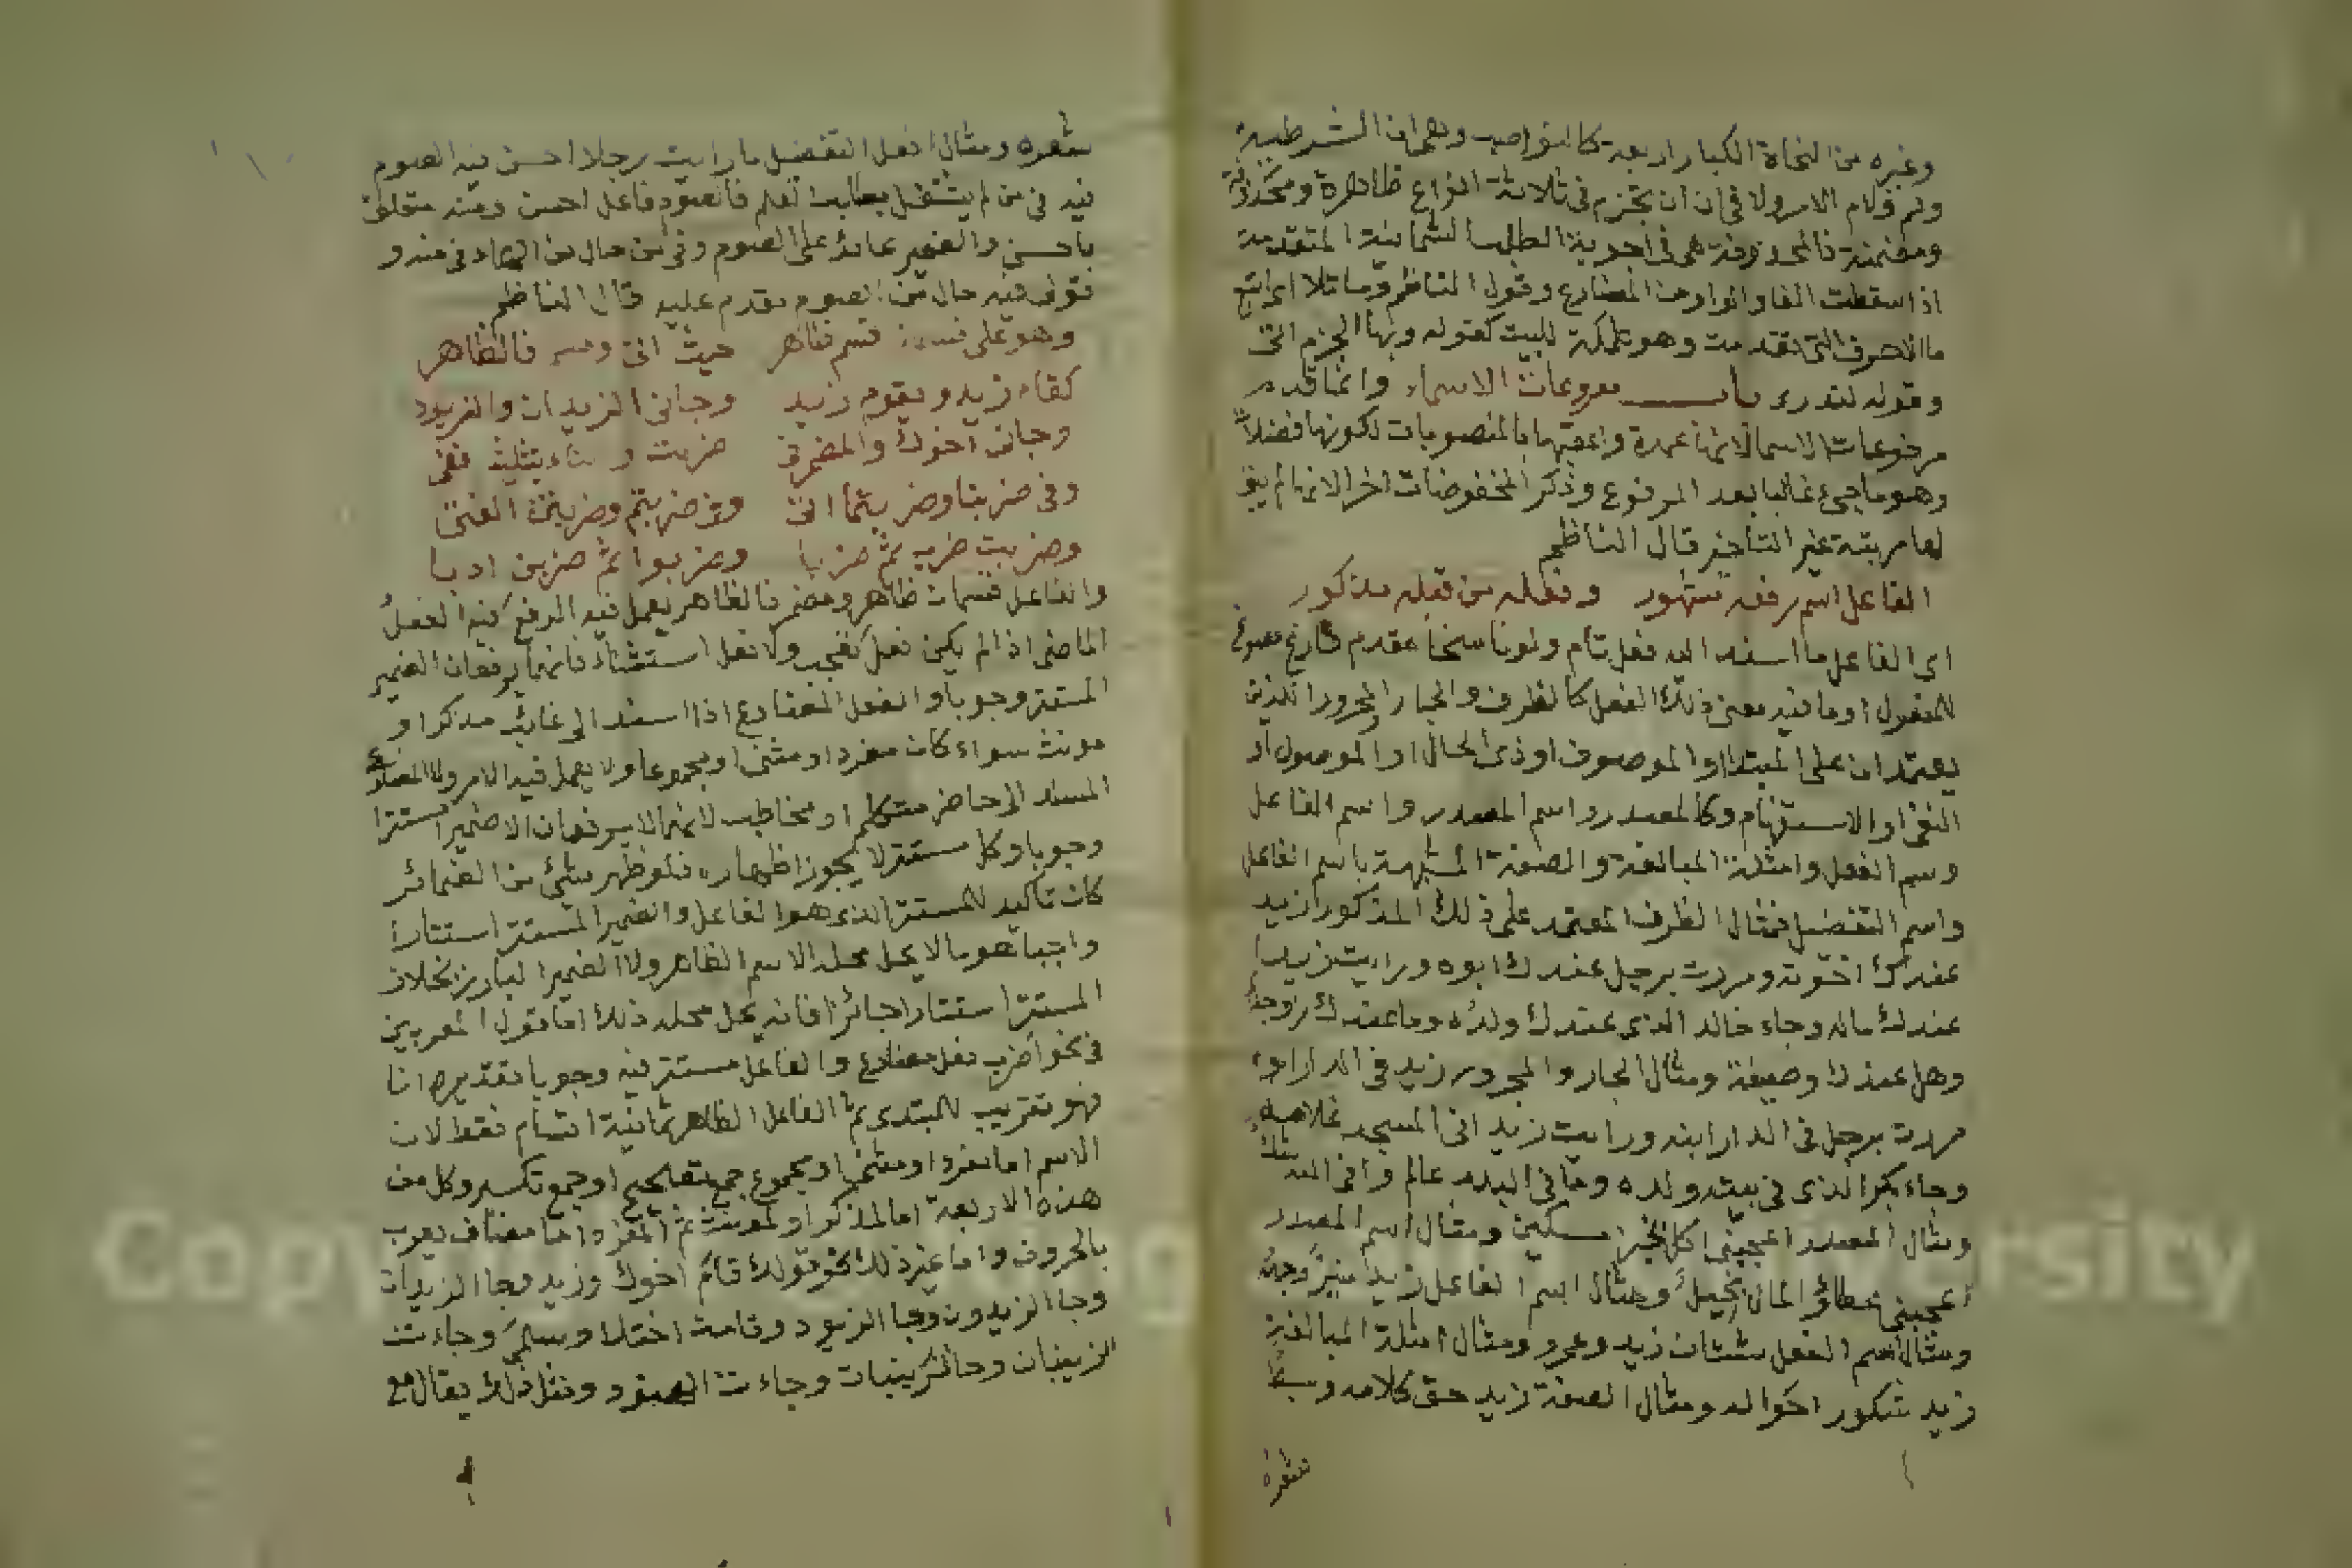 وغيره من النحاة الكبار اربعة كالنواصب وهم ان الشرطية
ولم ولام الامر ولا في ان ان تجزم في ثلاثة انواع ظاهرة ومحذوفة
ومضمنة فالمحذوفة هي في اجوبة الطلب الثمانية المتقدمة
اذا سقطت الفا والواو من المضارع وقول الناظم وما تلا اي اتبع
ما الاحرف التي تقدمت وهو تكملة للبيت كقوله وبها الجزم اتى
وقوله لتدرى باب مرفوعات الاسماء وانما قدم
مرفوعات الاسما لانها عمدة واعقبها بالمنصوبات لكونها فضلة
وهو ما جيء غالبا بعد المرفوع وذكر المخفوضات اخر الانها لم يبق
لها مرتبة غير التاخير قال الناظم
الفاعل اسم رفعه مشهور وفعله من قبله مذكور
اى الفاعل ما اسند اليه فعل تام ولو ناسخا مقدم فارغ مصوغ
للمفعول اوما فيه معنى ذلك الفعل كالظرف والجار والمجرور اللذين
يعتمدان على المبتدا او الموصوف او ذى الحال او الموصول او
النفى او الاستفهام وكالمصدر واسم المصدر واسم الفاعل
وسم الفعل وامثلة المبالغة والصفة المشبهة باسم الفاعل
واسم التفضيل فمثال الظرف المعتمد على ذلك المذكور ازيد
عندك اخوته ومررت برجل عندك ابوه ورايت زيدا
عندك ماله وجاء خالد الذى عندك ولده وما عندك زوجة
وهل عندك وضيفة ومثال الجار والمجرور زيد فى الدار ابوه
مررت برجل فى الدار ابنه ورايت زيد افى المسجد غلامه
وجاء بكر الذى فى بيته ولده وما فى البلد عالم وا فى الله شك
ومثال المصدر اعجبنى اكل الخبز مسكين ومثال اسم المصدر
اعجبنى عطاؤ المال بخيل ومثال اسم الفاعل زيد منير وجهه
ومثال اسم الفعل شتان زيد وعمرو ومثال امثلة المبالغة
زيد شكور اخوالد ومثال الصفة زيد حسن كلامه
شعره
شعره ومثال افعل التفضيل ما رايت رجلا احسن فيه الصوم
فيه فى من لم يشتغل بطالب لعلم فالصوم فاعل احسن ومنه متعلق
باحسن والضمير عائد على الصوم وفى من حال من الهاء فى منه و
قوله فيه حال من الصوم مقدم عليه قال الناظم
وهو على قسمين قسم ظاهر حيث اتى ومضمر فالظاهر
كقام زيد ويقوم زيد وجانى الزيدان والزيود
وجانى اخوك والمضمر فى ضربت وبتاء بتثليث تفى
وفى ضربنا وضربتما اتى وفى ضربتم وضربتن الفتى
وضربت ضرب ثم ضربا وضربوا ثم ضربن ادبا
والفاعل قسمان ظاهر ومضمر فالظاهر يعمل فيه الرفع فيه الفعل
الماضى اذا لم يكن فعل تعجب ولا فعل استثناء فانهما يرفعان الضمير
المستتر وجوبا والفعل المضارع اذا اسند الى غائب مذكرا و
مونث سواء كان مفردا او مثنى او مجموعا ولا يعمل فيه الامر ولا المضارع
المسند الى حاضر متكلم او مخاطب لانهما لا يرفعان الا ضميرا مستترا
وجوبا وكل مستتر لا يجوز اظهاره فلو ظهر شئ من الضمائر
كان تاكيد للمستتر الذى هو الفاعل والضمير المستتر استتارا
واجبا هو ما لا يحل محله الاسم الظاهر ولا الضمير البارز بخلاف
المستتر استتارا جائزا فانه يحل محله ذلك اما قول المعربين
فى نحو اضرب فعل مضارع والفاعل مستتر فيه وجوبا تقديره انا
فهو تقريب للمبتدى ثم الفاعل الظاهر ثمانية اقسام فقط لان
الاسم اما مفرد او مثنى او مجموع جمع تصحيح او جمع تكسير وكل من
هذه الاربعة اما لمذكر او لمونث ثم المفرد اما مضاف يعرب
بالحروف واما غير ذلك نحو قولك قام اخوك وزيد وجا الزيدان
وجا الزيدون وجا الزيود وقامت اختك وسلمى وجاءت
الزينبان وجا الزينبات وجاءت الهنود ومثل ذلك يقال مع